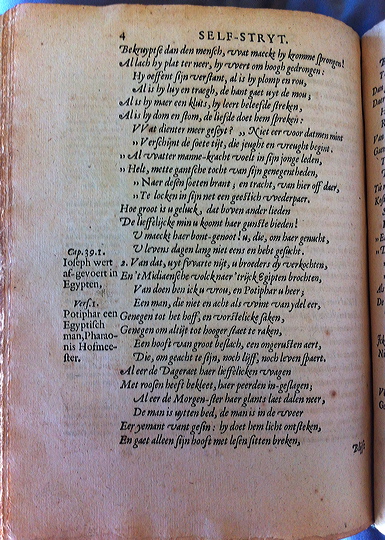 4 SELF-STRYT.
Bekruyptse dan den mensch, wat maeckt hy kromme sprongen!
Al lach hy plat ter neer, hy wert om hoogh gedrongen:
Hy oeffent sijn verstant, al is hy plomp en rou,
Al is hy luy en traegh, de hant gaet uyt de mou;
Al is hy maer een kluts, hy leert beleefde streken,
Al is hy dom en stom, de liefde doet hem spreken:
VVat dienter meer geseyt? „ Niet eer voor datmen mint
„ Verschijnt de soete tijt, die jeught en vreught begint.
„ Al watter manne-kracht voelt in sijn jonge leden,
„ Helt, mette gantsche tocht van sijn genegentheden,
„ Naer desen soeten brant; en tracht, van hier off daer,
„ Te locken in sijn net een geestich wederpaer.
Hoe groot is u geluck, dat boven ander lieden
De lieffelijcke min u koomt haer gunste bieden!
U maeckt haer bont-genoot! u, die, om haer genucht,
U levens dagen lang niet eens en hebt gesucht.
Cap. 39.1.
Ioseph wert
af-gevoert in
Egypten.
2. Van dat, uyt swarte nijt, u broeders dy verkochten,
En 't Midiaensche volck naer 'trijck Egipten brochten,
Van doen ben ick u vrou, en Potiphar u heer;
Vers. 1.
Potiphar een
Egyptisch
man, Pharao-
nis Hofmee-
ster.
Een man, die niet en acht als wint van ydel eer,
Genegen tot het hoff, en vorstelicke saken,
Genegen om altijt tot hooger staet te raken,
Een hooft van groot beslach, een ongerusten aert,
Die, om geacht te sijn, noch lijff, noch leven spaert.
Al eer de Dageraet haer lieffelicken wagen
Met roosen heeft bekleet, haer peerden in-geslagen;
Al eer de Morgen-ster haer glants laet dalen neer,
De man is uytten bed, de man is in de weer
Eer yemant want gesin: hy doet hem licht ontsteken,
En gaet alleen sijn hooft met lesen sitten breken,